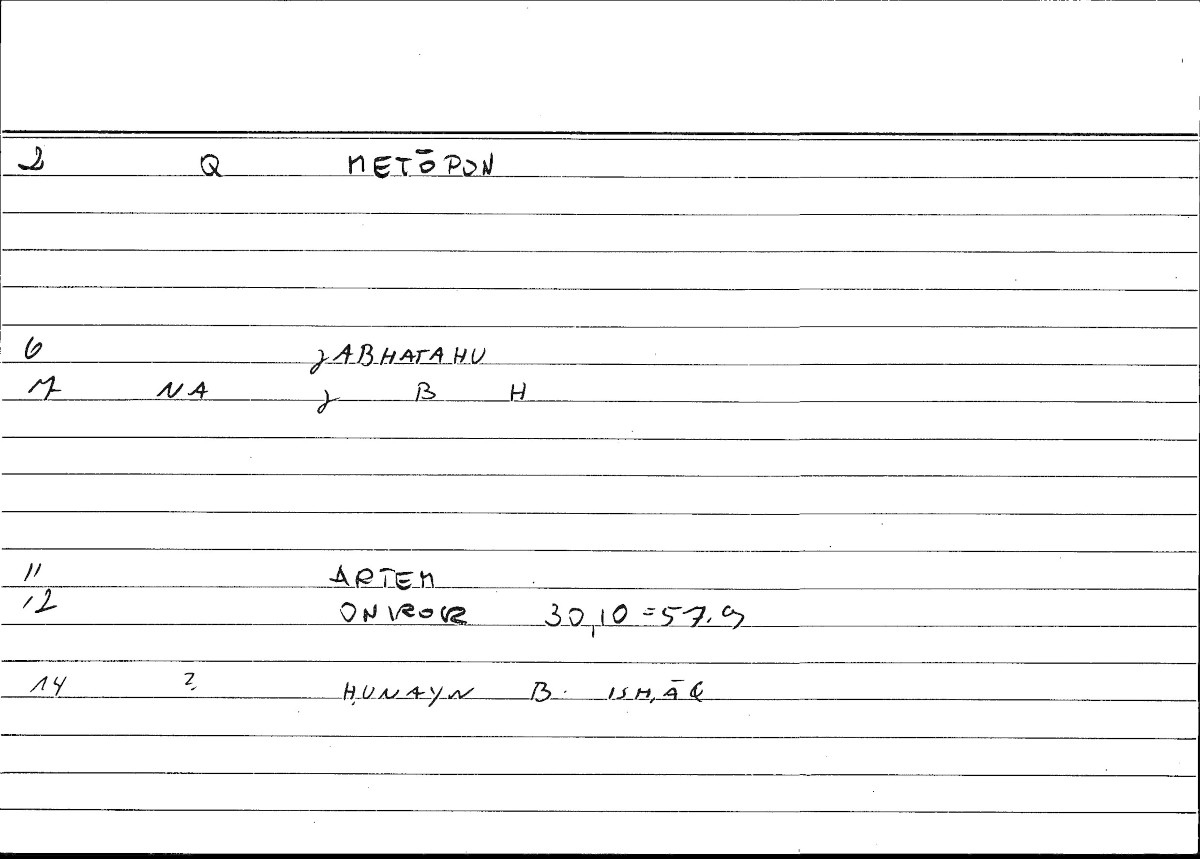 2 Q METŌPON
6 JABHATAHU
7 NA J B H
11 ARTEM
12 ONIROR 30,10 = 57.9
14 ? ḤUNAYN B. ISḤĀQ